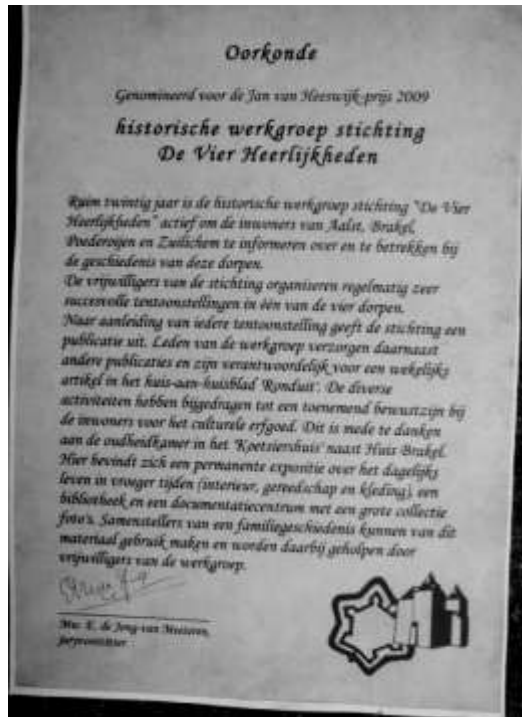 Oorkonde
Genomineerd voor de Jan van Heeswijk-prijs 2009
historische werkgroep stichting
De Vier Heerlijkheden
Ruim twintig jaar is de historische werkgroep stichting "De Vier
Heerlijkheden" actief om de inwoners van Aalst, Brakel,
Poederoijen en Zuilichem te informeren over en te betrekken bij
de geschiedenis van deze dorpen.
De vrijwilligers van de stichting organiseren regelmatig zeer
succesvolle tentoonstellingen in één van de vier dorpen.
Naar aanleiding van iedere tentoonstelling geeft de stichting een
publicatie uit. Leden van de werkgroep verzorgen daarnaast
andere publicaties en zijn verantwoordelijk voor een wekelijks
artikel in het huis-aan-huisblad 'Ronduit'. De diverse
activiteiten hebben bijgedragen tot een toenemend bewustzijn bij
de inwoners voor het culturele erfgoed. Dit is mede te danken
aan de oudheidkamer in het 'Koetsiershuis' naast Huis Brakel.
Hier bevindt zich een permanente expositie over het dagelijks
leven in vroeger tijden (interieur, gereedschap en kleding), een
bibliotheek en een documentatiecentrum met een grote collectie
foto's. Samenstellers van een familiegeschiedenis kunnen van dit
materiaal gebruik maken en worden daarbij geholpen door
vrijwilligers van de werkgroep.
E. de Jong-van
juryvoorzitter